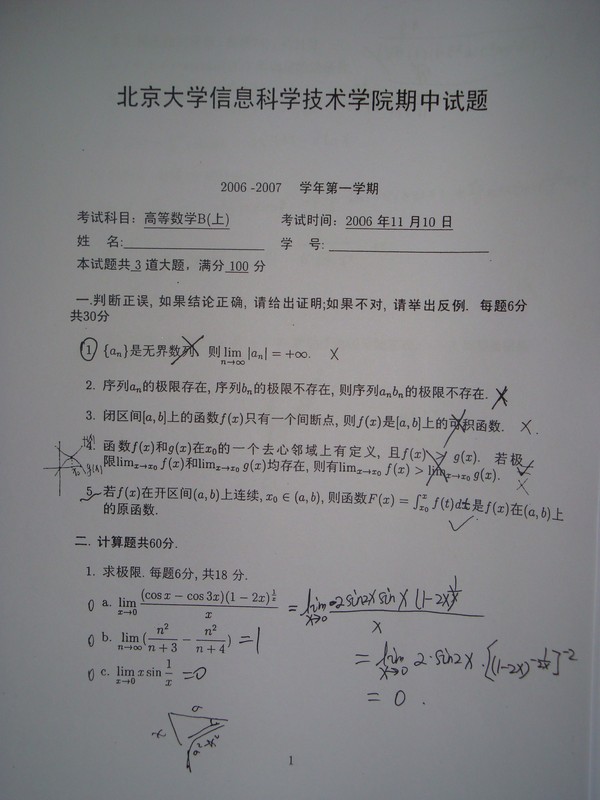 北京大学信息科学技术学院期中试题
2006 -2007 学年第一学期
考试科目: 高等数学B(上) 考试时间: 2006 年11 月10 日
姓 名: 学 号:
本试题共 3 道大题, 满分 100 分
一.判断正误, 如果结论正确, 请给出证明;如果不对, 请举出反例. 每题6分
共30分
1. {aₙ}是无界数列, 则 lim_{n→∞} |aₙ| = +∞. ×
2. 序列aₙ的极限存在, 序列bₙ的极限不存在, 则序列aₙbₙ的极限不存在. ×
3. 闭区间[a, b]上的函数f(x)只有一个间断点, 则f(x)是[a, b]上的可积函数. ×
4. 函数f(x)和g(x)在x₀的一个去心邻域上有定义, 且f(x) > g(x). 若极
限lim_{x→x₀} f(x)和lim_{x→x₀} g(x)均存在, 则有lim_{x→x₀} f(x) > lim_{x→x₀} g(x). ×
5. 若f(x)在开区间(a, b)上连续, x₀ ∈ (a, b), 则函数F(x) = ∫_{x₀}^{x} f(t)dt是f(x)在(a, b)上
的原函数. ✓
二. 计算题共60分.
1. 求极限. 每题6分, 共18 分.
0 a. lim_{x→0} (cos x − cos 3x)(1 − 2x)^{1/x} / x = lim_{x→0} 2 sin2x sin x (1-2x)^{1/x} / x
0 b. lim_{n→∞} (n²/(n + 3) − n²/(n + 4)) = 1
= lim_{x→0} 2·sin2x·[(1-2x)^{-1/2x}]^{-2}
0 c. lim_{x→0} x sin 1/x = 0
= 0 .
a
x
1